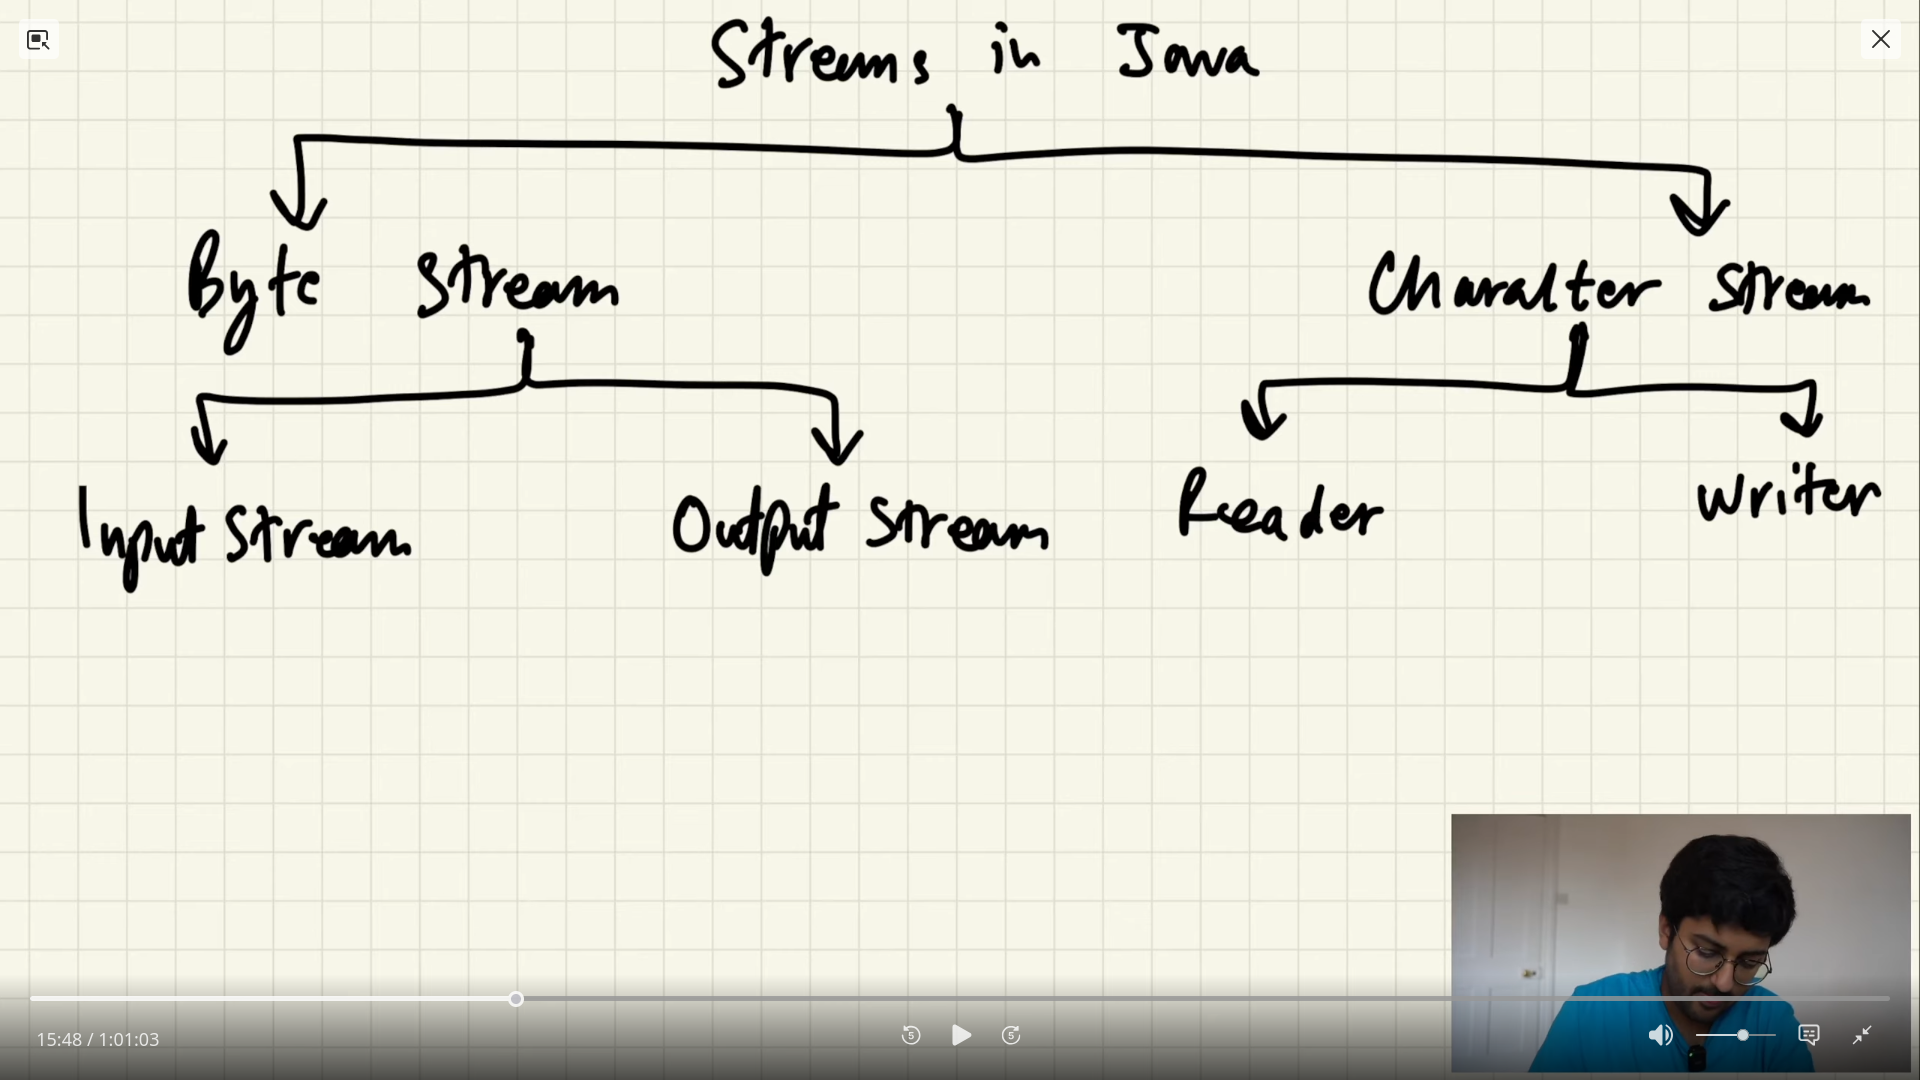 Streams in Java
Byte Stream
Character Stream
Input Stream
Output Stream
Reader
Writer
5
5
15:48 / 1:01:03